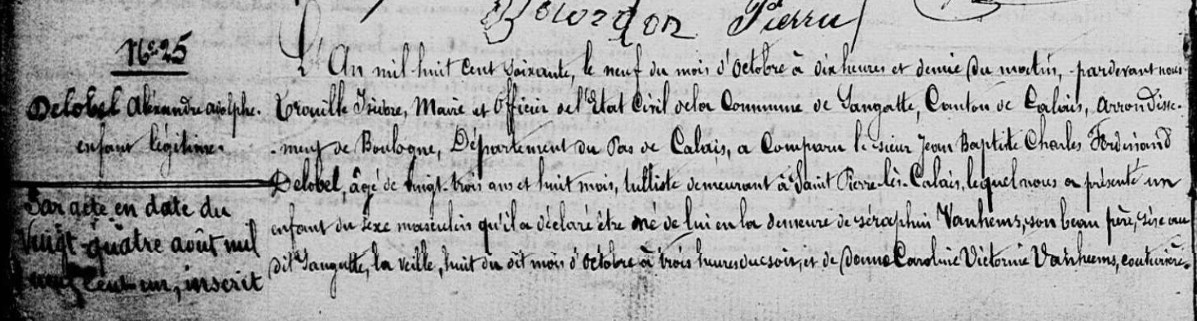 Pierre
N° 25
Delobel Alexandre adolphe.
enfant légitime.
Par acte en date du
vingt-quatre août mil
neuf cent un, inscrit
L'An mil huit cent soixante, le neuf du mois d'Octobre à dix heures et demie du matin, pardevant nous
Trouille Isidore, Maire et Officier de l'Etat Civil dela Commune de Sangatte, Canton de Calais, arrondisse-
-ment de Boulogne, Département du Pas de Calais, a Comparu le sieur Jean Baptiste Charles Ferdinand
Delobel, âgé de vingt-trois ans et huit mois, tulliste demeurant à Saint Pierre-lès-Calais, lequel nous a présenté un
enfant du sexe masculin qu'il a déclaré être né de lui en la demeure de séraphin Vanhems, son beau père, sise au
dit Sangatte, la veille, huit du dit mois d'octobre à trois heures du soir, et de Dame Caroline Victorine Vanheems, couturière.